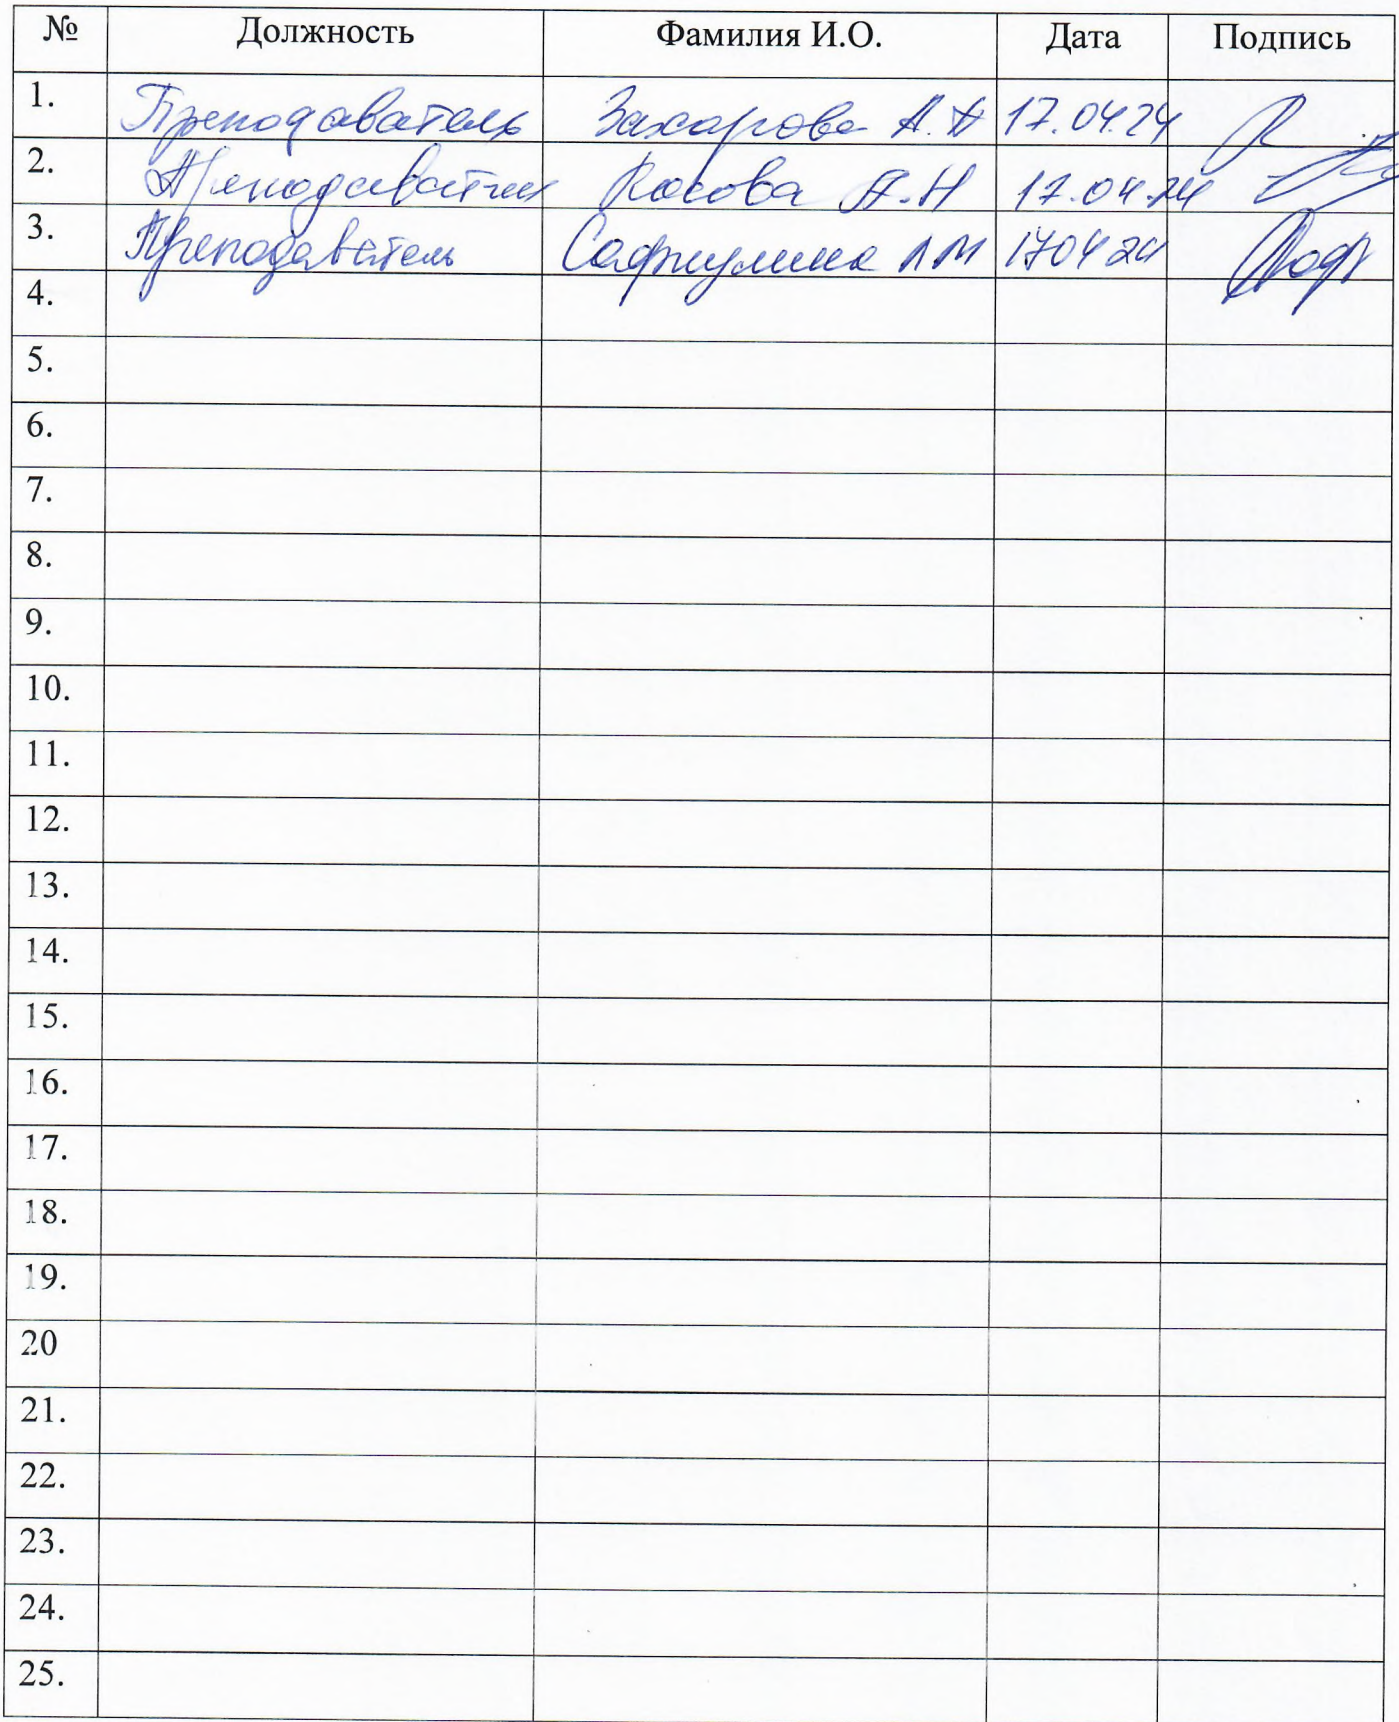 № Должность Фамилия И.О. Дата Подпись
1. Преподаватель Захарова А.А 17.04.24
2. Преподаватель Косова А.Н 17.04.24
3. Преподаватель Сафиулина Л М 17 04 24
4.
5.
6.
7.
8.
9.
10.
11.
12.
13.
14.
15.
16.
17.
18.
19.
20
21.
22.
23.
24.
25.